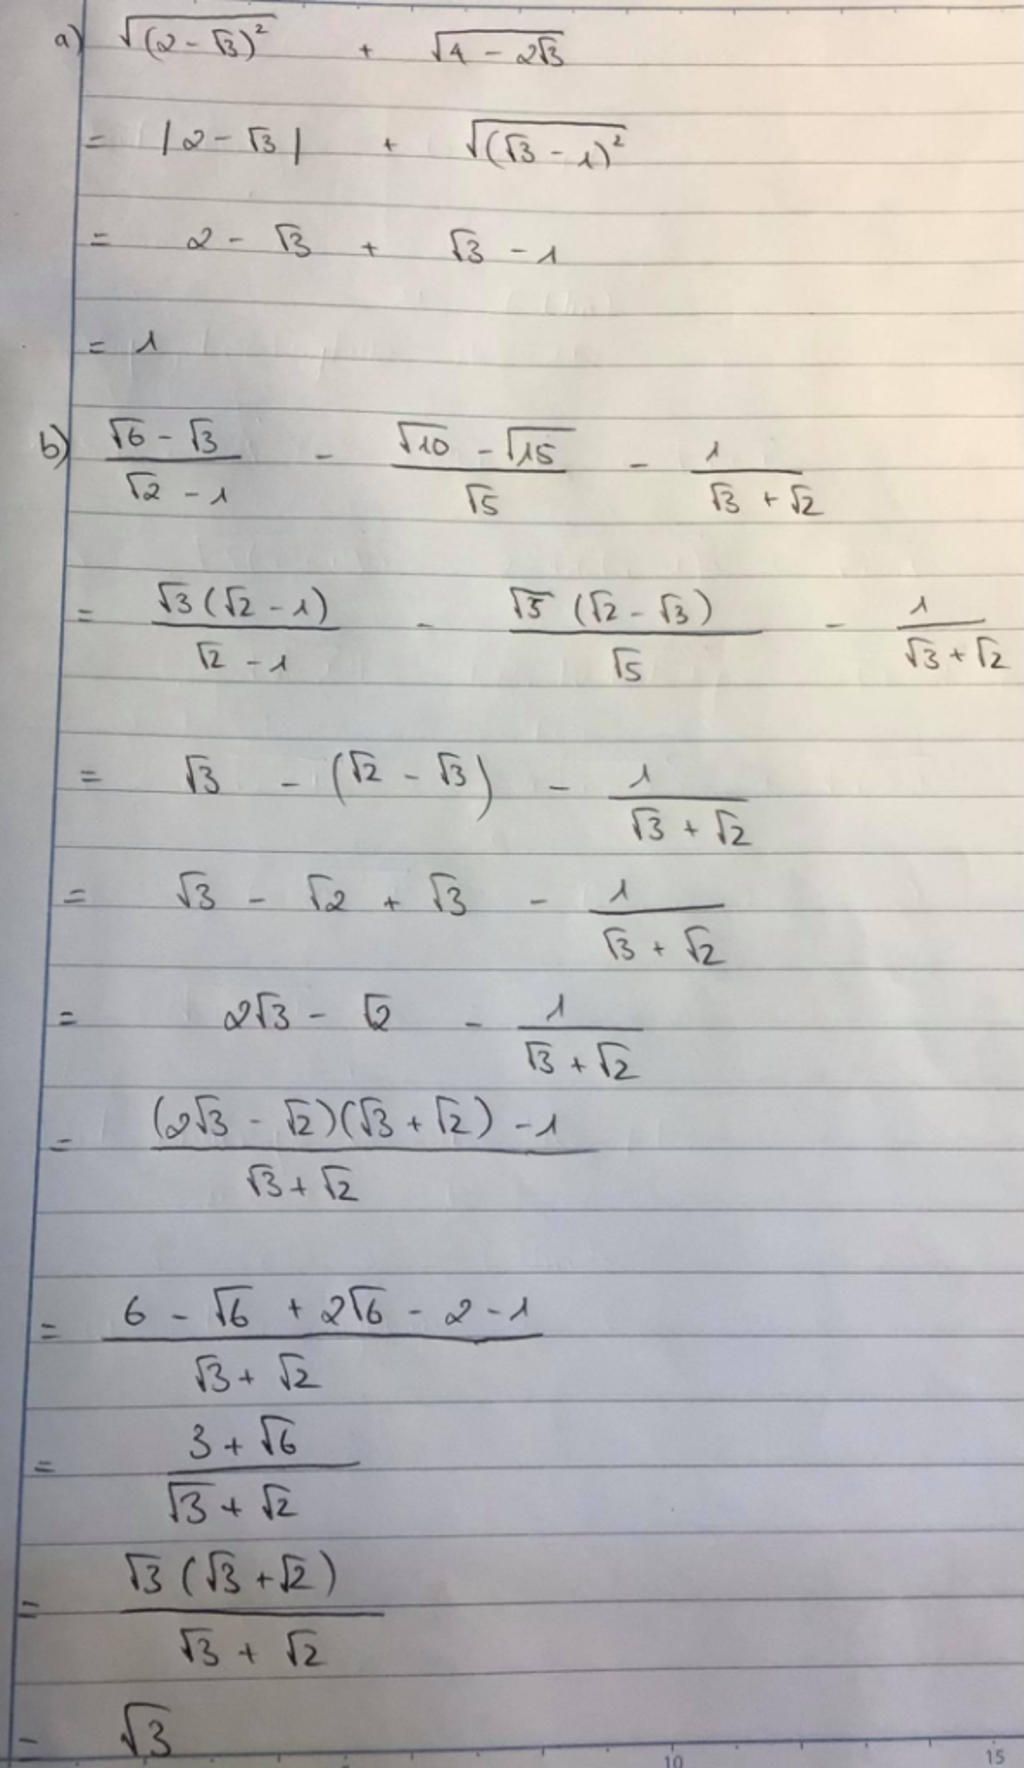 a) √((2 - √3)²) + √(4 - 2√3)
= |2 - √3| + √((√3 - 1)²)
= 2 - √3 + √3 - 1
= 1
b) (√6 - √3)/(√2 - 1) - (√10 - √15)/√5 - 1/(√3 + √2)
= √3(√2 - 1)/(√2 - 1) - √5(√2 - √3)/√5 - 1/(√3 + √2)
= √3 - (√2 - √3) - 1/(√3 + √2)
= √3 - √2 + √3 - 1/(√3 + √2)
= 2√3 - √2 - 1/(√3 + √2)
= ((2√3 - √2)(√3 + √2) - 1)/(√3 + √2)
= (6 - √6 + 2√6 - 2 - 1)/(√3 + √2)
= (3 + √6)/(√3 + √2)
= √3(√3 + √2)/(√3 + √2)
= √3
10 15